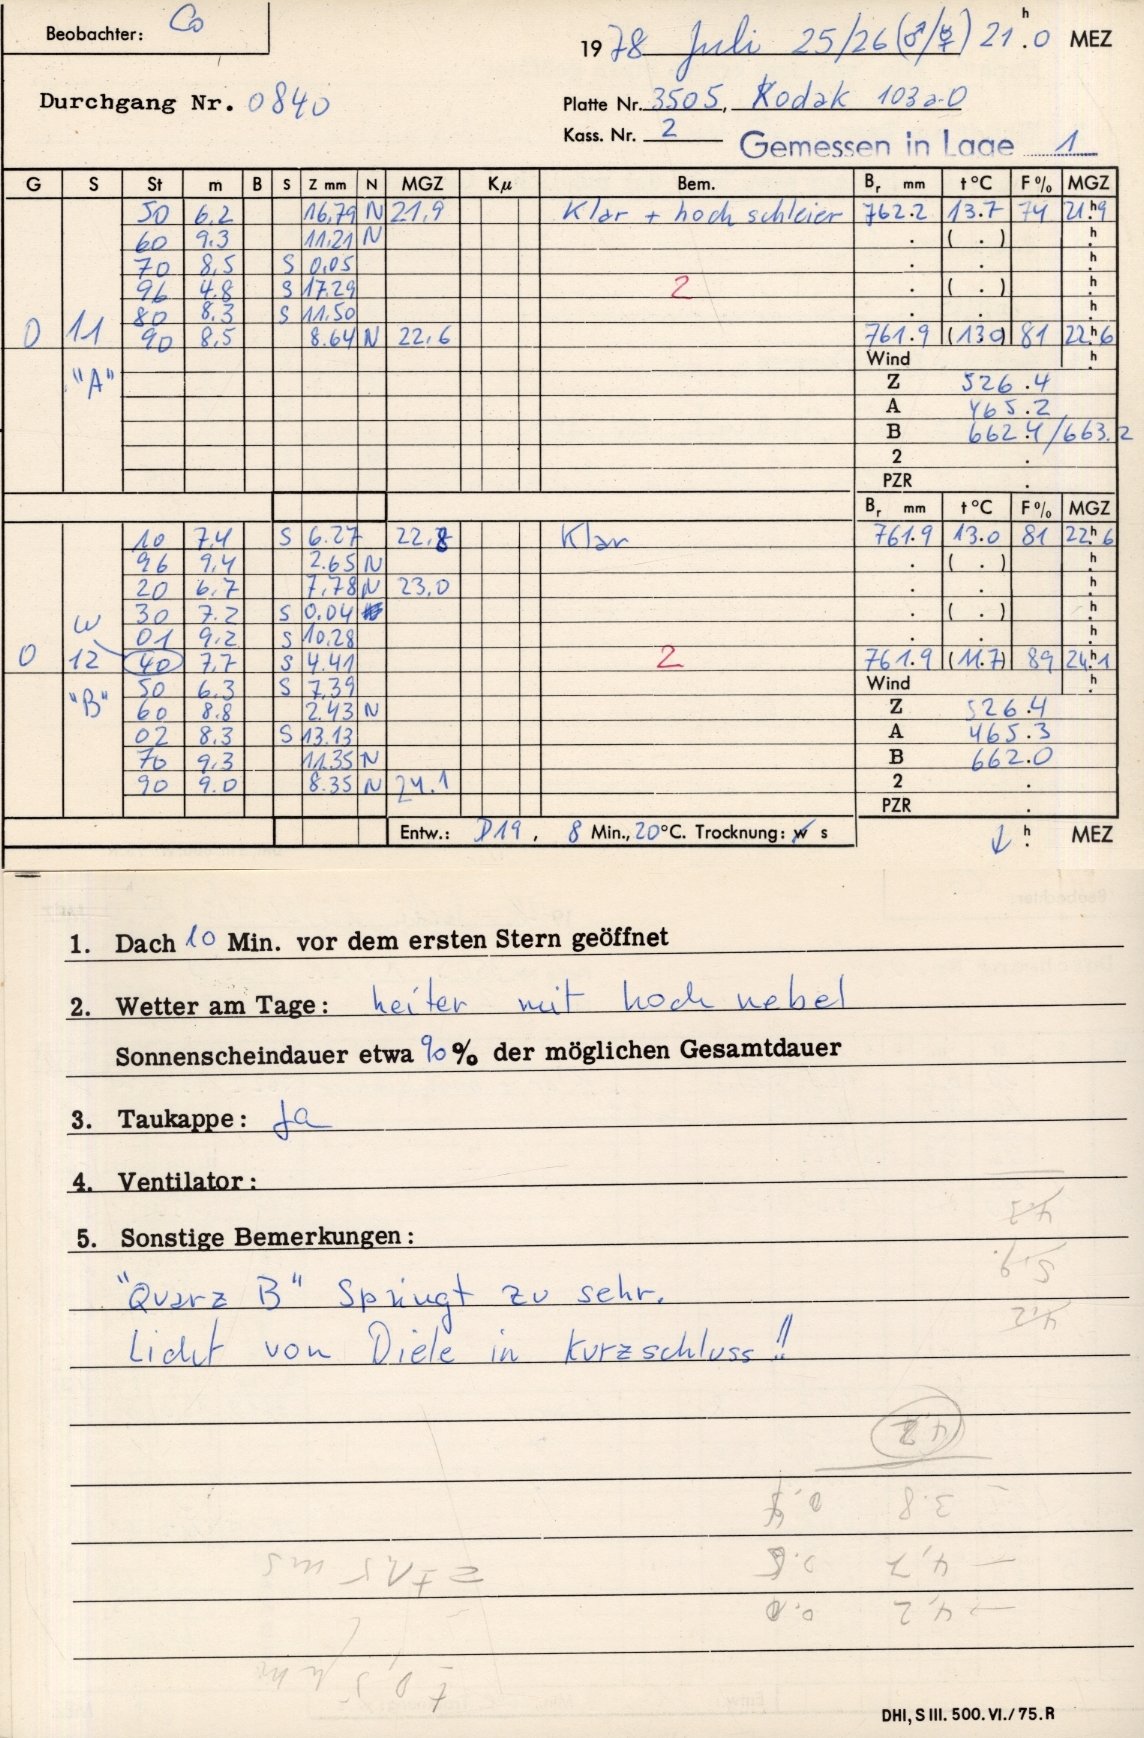 Beobachter: Co
1978 Juli 25/26 (♂/☿) 21h.0 MEZ
Durchgang Nr. 0840
Platte Nr. 3505, Kodak 103a-O
Kass. Nr. 2
Gemessen in Lage 1
G S St m B S Z mm N MGZ Kμ Bem. Br mm t°C F% MGZ
50 6.2 16,79 N 21,9 Klar + hochschleier 762.2 13.7 74 21h9
60 9.3 11.21 N . ( . ) h
70 8,5 S 0,05 . . h
96 4.8 S 17.29 2 . ( . ) h
80 8.3 S 11.50 . . h
0 11 90 8,5 8.64 N 22,6 761.9 (13.0) 81 22h6
Wind h
"A" Z 526.4
A 465.2
B 662.4/663.2
2 .
PZR .
Br mm t°C F% MGZ
10 7,4 S 6.27 22,8 Klar 761.9 13.0 81 22h6
96 9,4 2.65 N . ( . ) h
20 6,7 7,78 N 23,0 . . h
30 7.2 S 0,04 . ( . ) h
W 01 9,2 S 10,28 . . h
0 12 40 7,7 S 4.41 2 761.9 (11.7) 89 24h1
"B" 50 6.3 S 7,39 Wind h
60 8.8 2.43 N Z 526.4
02 8.3 S 13.13 A 465.3
70 9,3 11.35 N B 662.0
90 9.0 8.35 N 24.1 2 .
PZR .
Entw.: D19, 8 Min., 20°C. Trocknung: w s ↓ h MEZ
1. Dach 10 Min. vor dem ersten Stern geöffnet
2. Wetter am Tage: heiter mit hochnebel
Sonnenscheindauer etwa 90% der möglichen Gesamtdauer
3. Taukappe: Ja
4. Ventilator:
5. Sonstige Bemerkungen:
4.3
5.9.
4,2
"Quarz B" Springt zu sehr.
Licht von Diele in Kurzschluss!!
3.8
4,2 0.0
DHI, S III. 500. VI./75. R